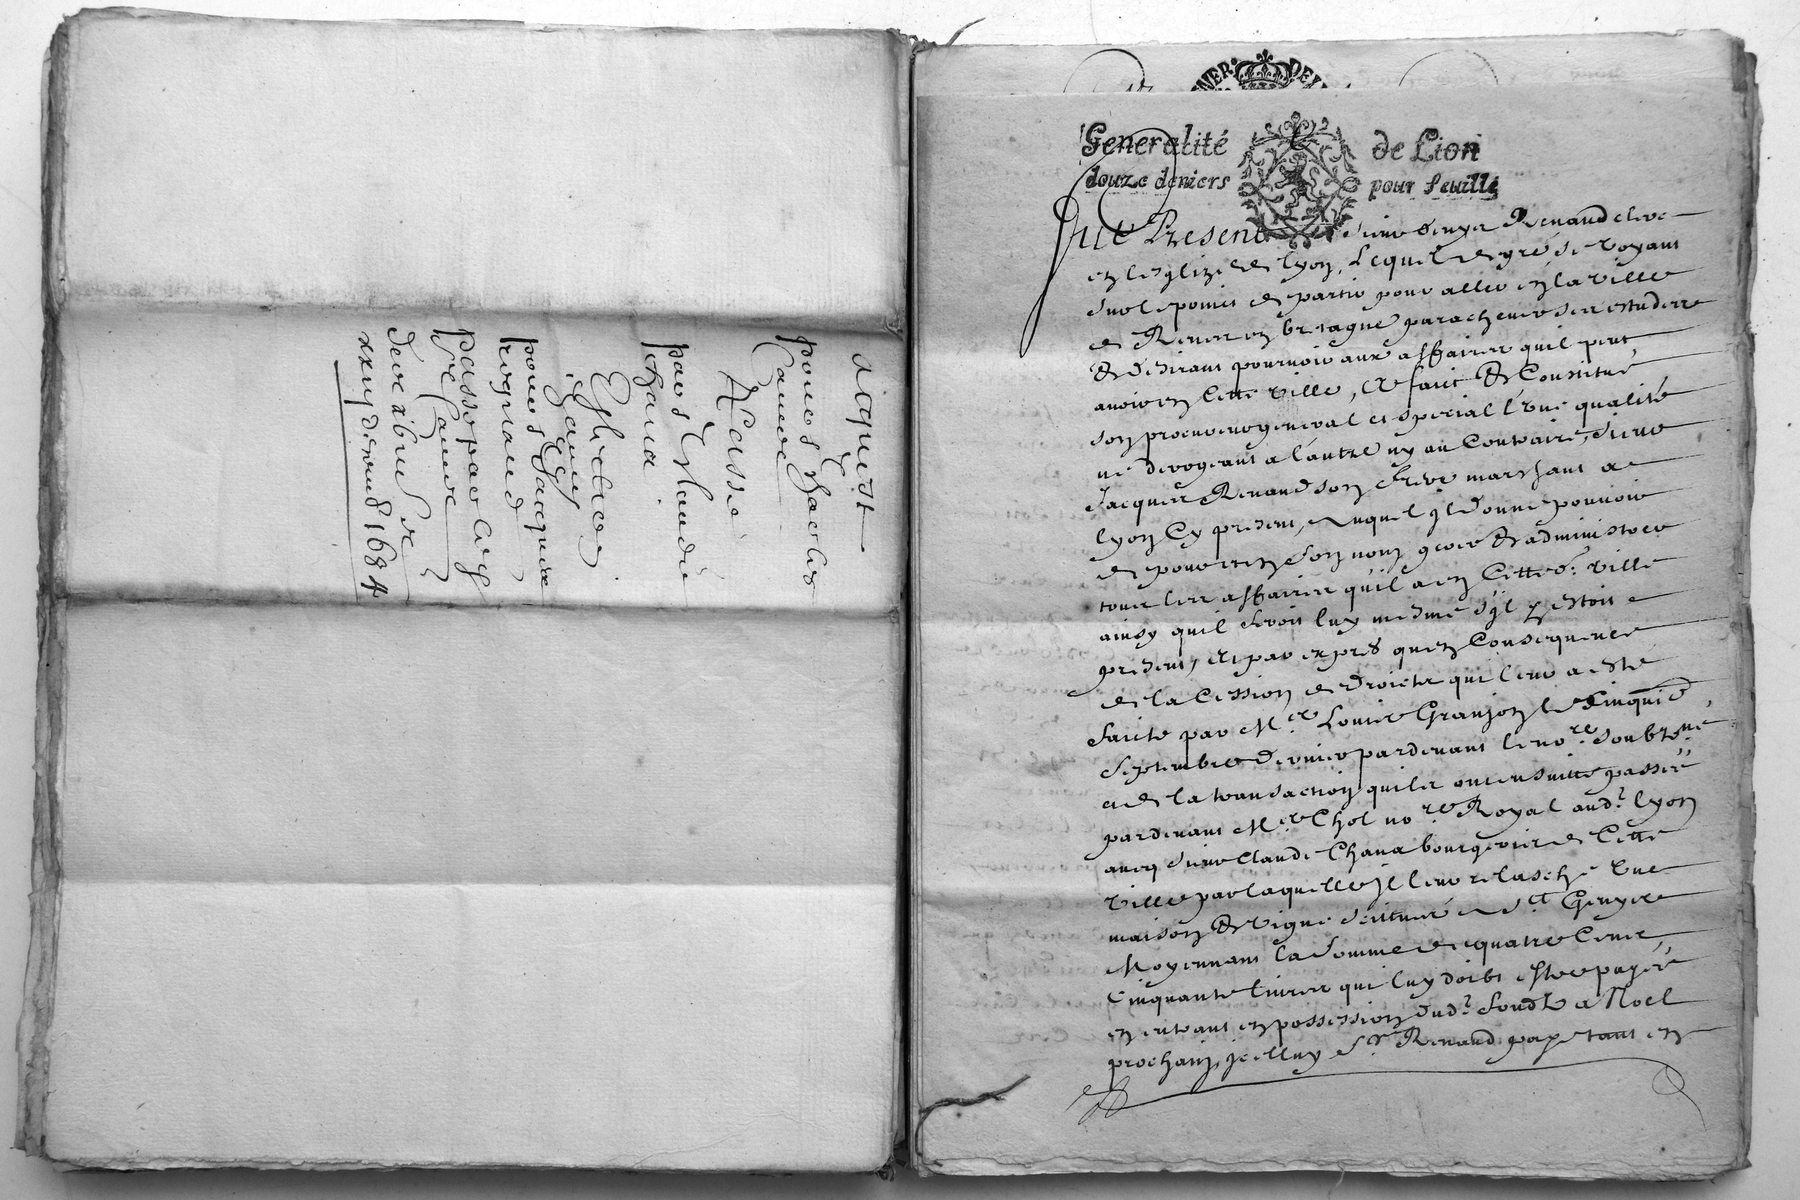 acquist
pour Jacques
Cauve
Casse
par Claude
chana
pour Jacques
regnaud
passé par
de
1684
Generalité de Lion
douze deniers pour feuille
Fut Present Sieur Renaud clerc
en l'esglize de lyon, Lequel de gré, se voyant
sur le point de partir pour aller en la ville
de Renes en bretagne parachever ses estudes
& desirant pourvoir aux affaires quil peut
avoir en Cette ville, a fait & Constitué
son procureur general et special l'une qualité
ne derogeant a l'autre ny au Contraire, sieur
Jacques Renaud son frere marchant a
lyon Cy present, auquel il donne pouvoir
de pour et en son nom gerer & administrer
tous les affaires qu'il a en Cette d: ville
ainsy quil feroit luy mesme s'il y estoit
present, et par expres quen Consequence
de la Cession de droicts qui leur a esté
faicte par Mre Louis Granjon le Cinquie
septembre dernier pardevant le nore soubzné
et de la transaction quils ont ensuitte passée
pardevant Mre Chol nore Royal aud: lyon
avec sieur Claude Chana bourgeois de Cette
ville par laquelle il leur relasche une
maison & vigne scituée a St Genys
Moyennant la somme de quatre Cens
Cinquante livres qui luy doibt estre payée
en entrant en possession dud: fondz a Noel
prochain, icelluy Sr Renaud tant en